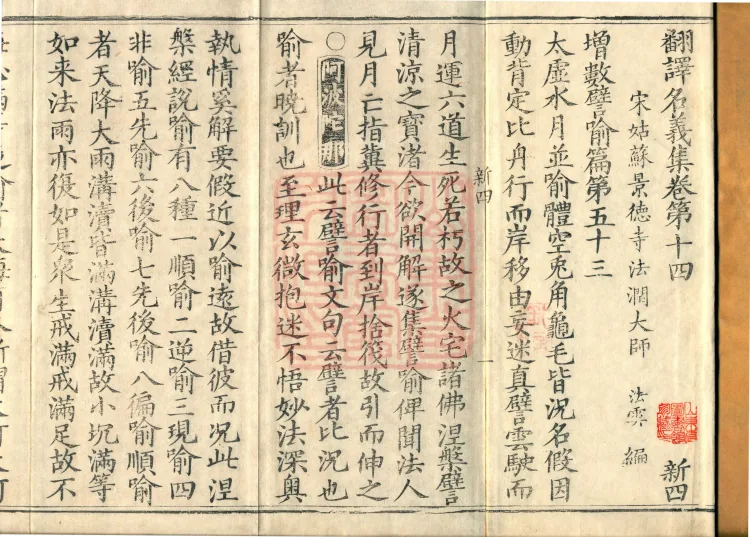 翻譯名義集卷第十四 新四
宋姑蘇景德寺法潤大師 法雲 編
增數譬喻篇第五十三
太虛水月並喻體空兎角龜毛皆況名假因
動背定比舟行而岸移由妄迷真譬雲駛而
新四 一
月運六道生死若朽故之火宅諸佛涅槃譬
清涼之寶渚今欲開解遂集譬喻俾聞法人
見月亡指冀修行者到岸捨筏故引而伸之
○阿波陀那 此云譬喻文句云譬者比況也
喻者曉訓也至理玄微抱迷不悟妙法深奧
執情奚解要假近以喻遠故借彼而況此涅
槃經說喻有八種一順喻二逆喻三現喻四
非喻五先喻六後喻七先後喻八徧喻順喻
者天降大雨溝瀆皆滿溝瀆滿故小坑滿等
如来法雨亦復如是衆生戒滿戒滿足故不